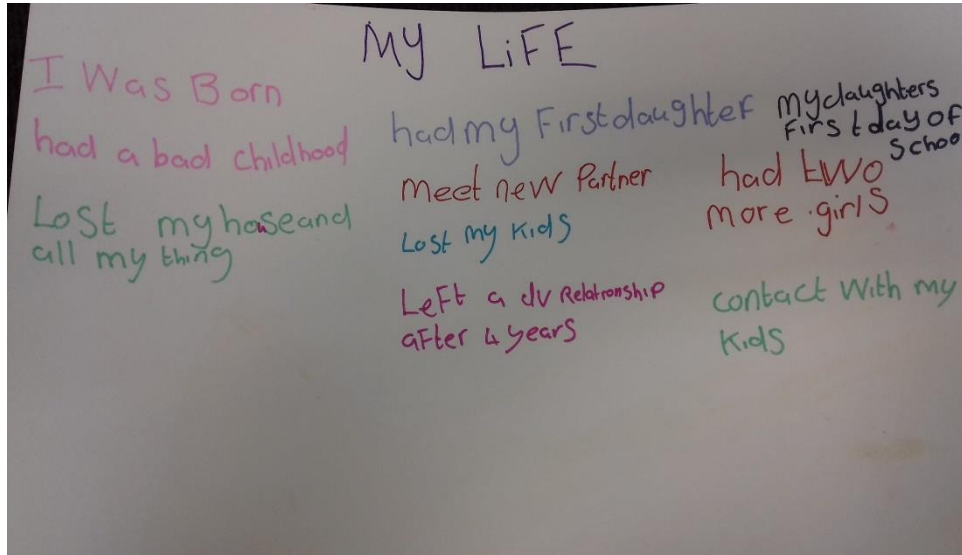 MY LiFE
I Was Born
had a bad childhood
Lost my houseand
all my thing
had my Firstdaughter
meet new Partner
Lost my Kids
Left a dv Relationship
after 4 years
mydaughters
First day of
School
had two
more girls
contact with my
Kids